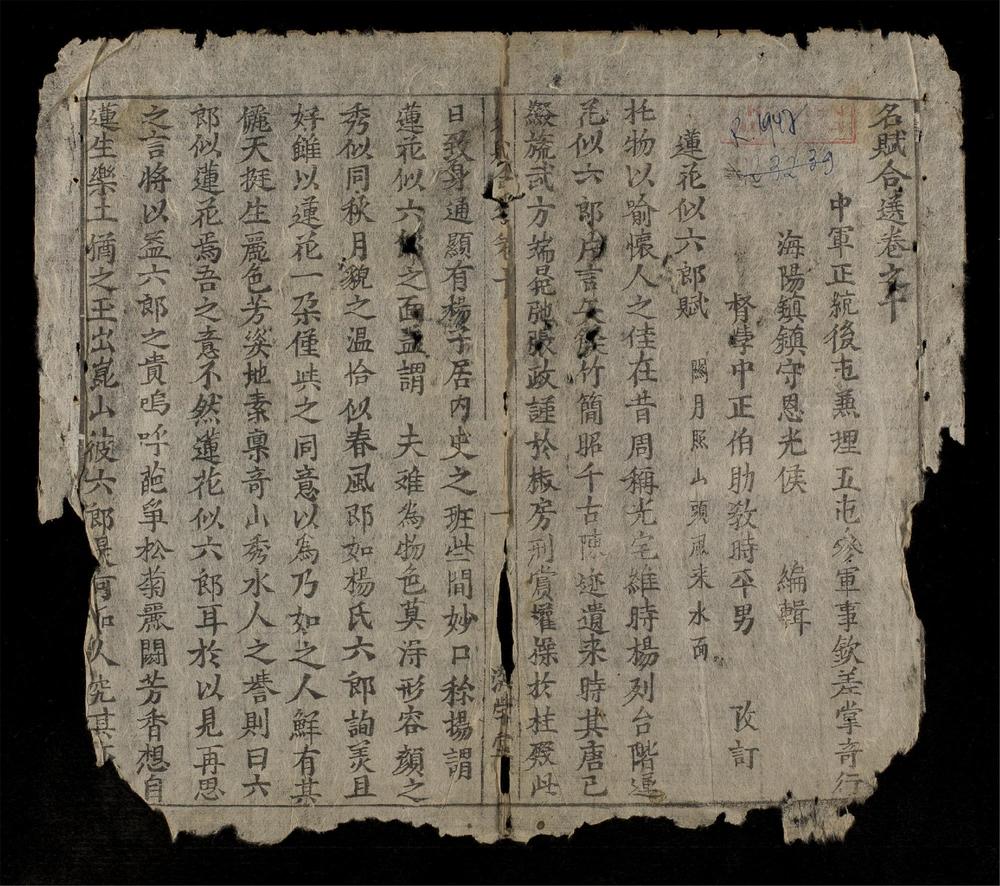 名賦合選卷之下
R.1948
22239
中軍正統後屯兼理五屯參軍事欽差掌奇行
海陽鎮鎮守恩光侯 編輯
督學中正伯肋教時平男 改訂
蓮花似六郎賦 月照山頭風来水面
托物以喻懷人之佳在昔周稱光宅維時楊列台階運
花似六郎片言矢竹簡昭千古陳迹遺来時其唐已
綴旒武方端冕弛張政謹於椒房刑賞擢操於桂殿此
日致身通顯有楊子居内史之班些間妙口稌揚謂
蓮花似六郎之面盖謂 夫难為物色莫淂形容顏之
秀似同秋月貌之温恰似春風郎如楊氏六郎詢羙且
好雖以蓮花一朵僅此之同意以為乃如之人鮮有其
儷天挺生麗色芳姿地素禀奇山秀水人之誉則曰六
郎似蓮花焉吾之意不然蓮花似六郎耳於以見再思
之言將以益六郎之貴嗚呼葩争松菊麗闘芳香想自
蓮生樂土猶之玉出崑山彼六郎是何人究其